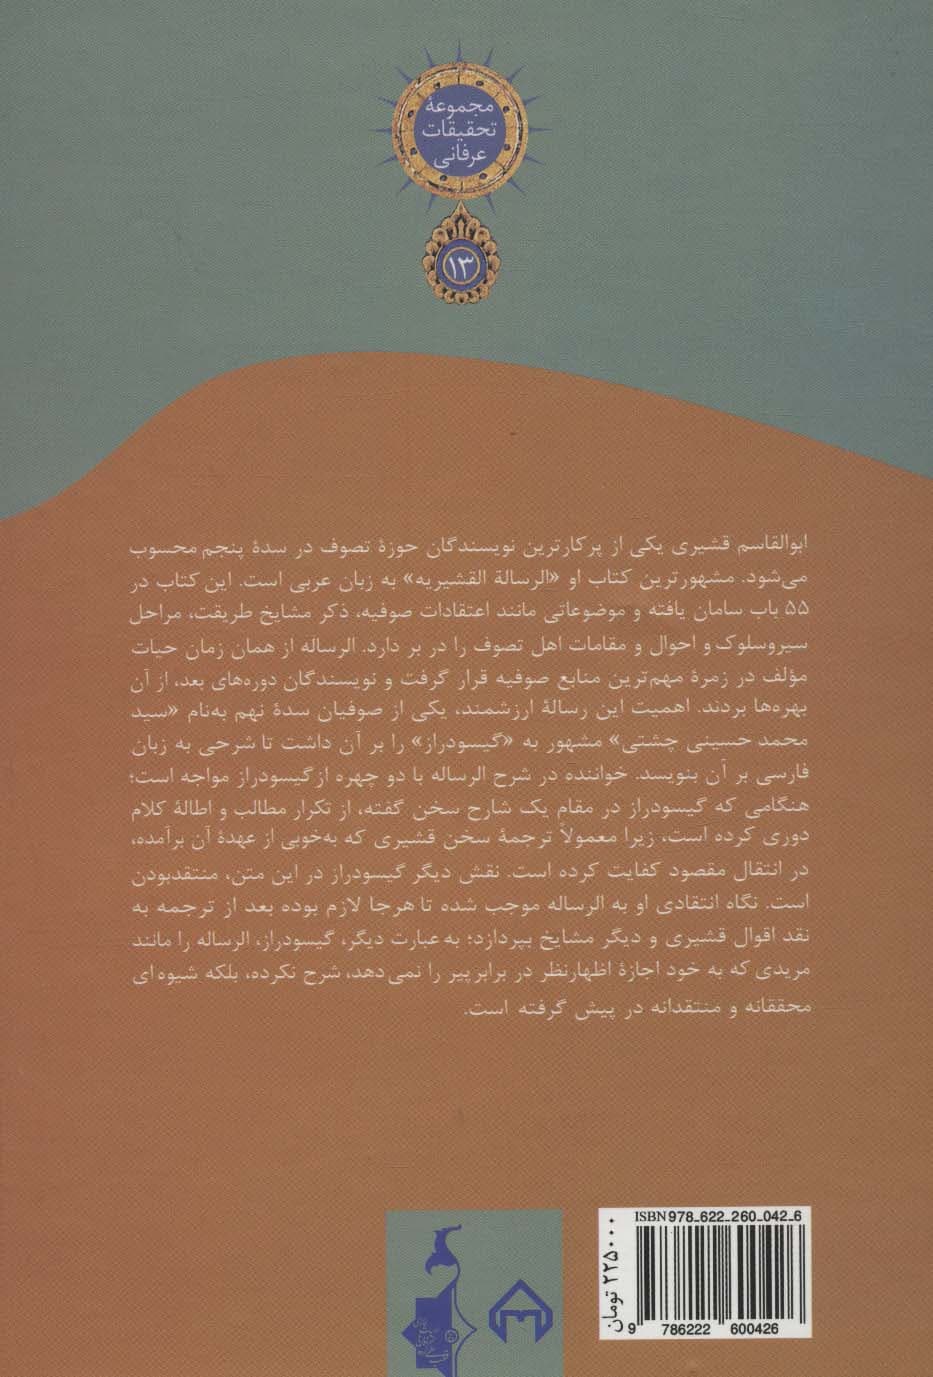 مجموعهٔ
تحقیقات
عرفانی
۱۳
ابوالقاسم قشیری یکی از پرکارترین نویسندگان حوزهٔ تصوف در سدهٔ پنجم محسوب
می‌شود. مشهورترین کتاب او «الرسالة القشیریه» به زبان عربی است. این کتاب در
۵۵ باب سامان یافته و موضوعاتی مانند اعتقادات صوفیه، ذکر مشایخ طریقت، مراحل
سیروسلوک و احوال و مقامات اهل تصوف را در بر دارد. الرساله از همان زمان حیات
مؤلف در زمرهٔ مهم‌ترین منابع صوفیه قرار گرفت و نویسندگان دوره‌های بعد، از آن
بهره‌ها بردند. اهمیت این رسالهٔ ارزشمند، یکی از صوفیان سدهٔ نهم به‌نام «سید
محمد حسینی چشتی» مشهور به «گیسودراز» را بر آن داشت تا شرحی به زبان
فارسی بر آن بنویسد. خواننده در شرح الرساله با دو چهره از گیسودراز مواجه است؛
هنگامی که گیسودراز در مقام یک شارح سخن گفته، از تکرار مطالب و اطالهٔ کلام
دوری کرده است، زیرا معمولاً ترجمهٔ سخن قشیری که به‌خوبی از عهدهٔ آن برآمده،
در انتقال مقصود کفایت کرده است. نقش دیگر گیسودراز در این متن، منتقدبودن
است. نگاه انتقادی او به الرساله موجب شده تا هرجا لازم بوده بعد از ترجمه به
نقد اقوال قشیری و دیگر مشایخ بپردازد؛ به عبارت دیگر، گیسودراز، الرساله را مانند
مریدی که به خود اجازهٔ اظهارنظر در برابر پیر را نمی‌دهد، شرح نکرده، بلکه شیوه‌ای
محققانه و منتقدانه در پیش گرفته است.
ISBN 978-622-260-042-6
9 786222 600426
۲۲۵۰۰۰ تومان